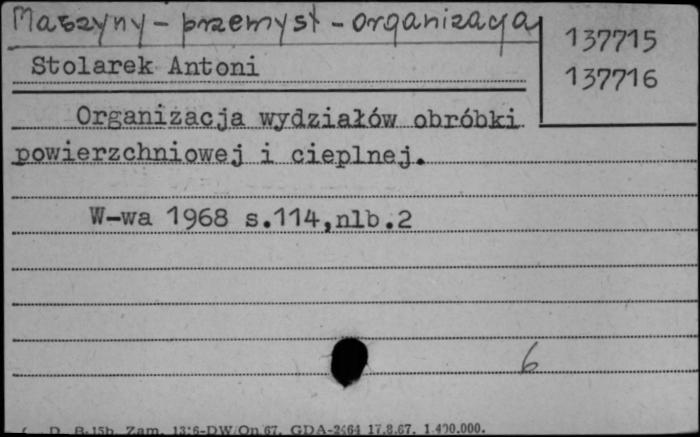 Maszyny - przemysł - organizacja
137715
137716
Stolarek Antoni
Organizacja wydziałów obróbki
powierzchniowej i cieplnej.
W-wa 1968 s.114,nlb.2
6
D. B-15b. Zam. GDA-2464 17.8.67. 1.400.000.